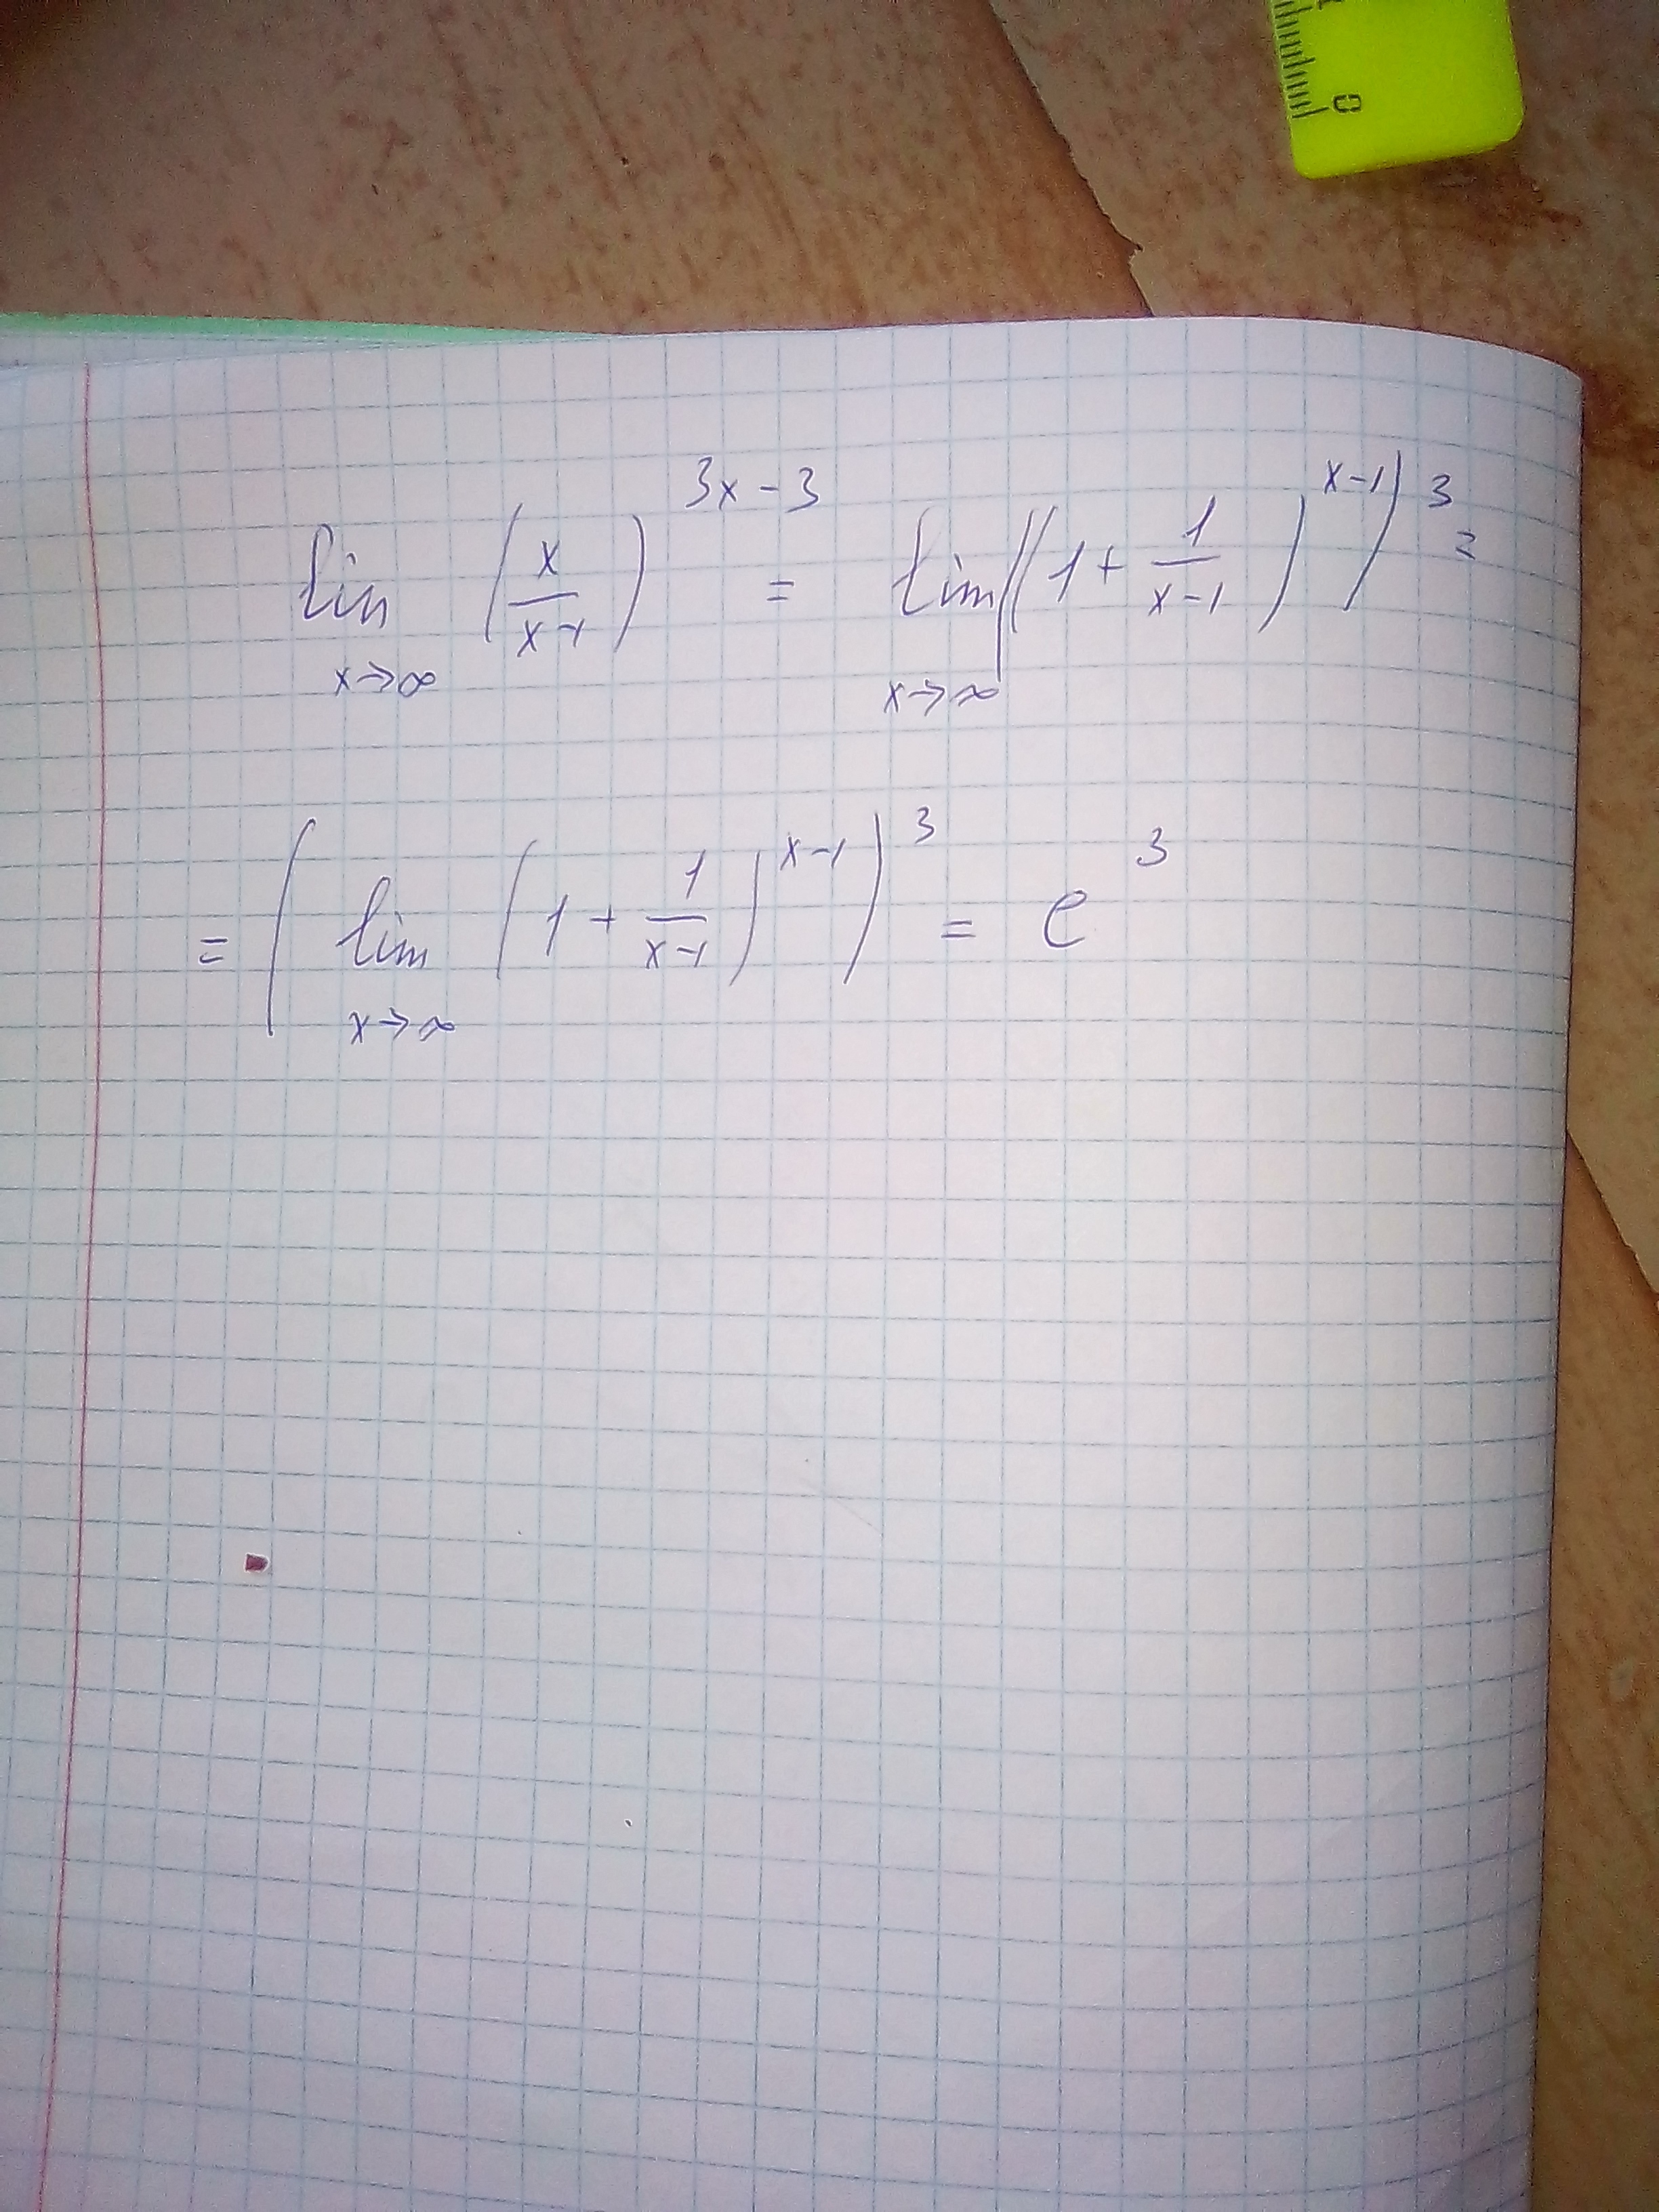 lim x→∞ (x/(x-1))^(3x-3) = lim x→∞ ((1+1/(x-1))^(x-1))^3 =
= (lim x→∞ (1+1/(x-1))^(x-1))^3 = e^3